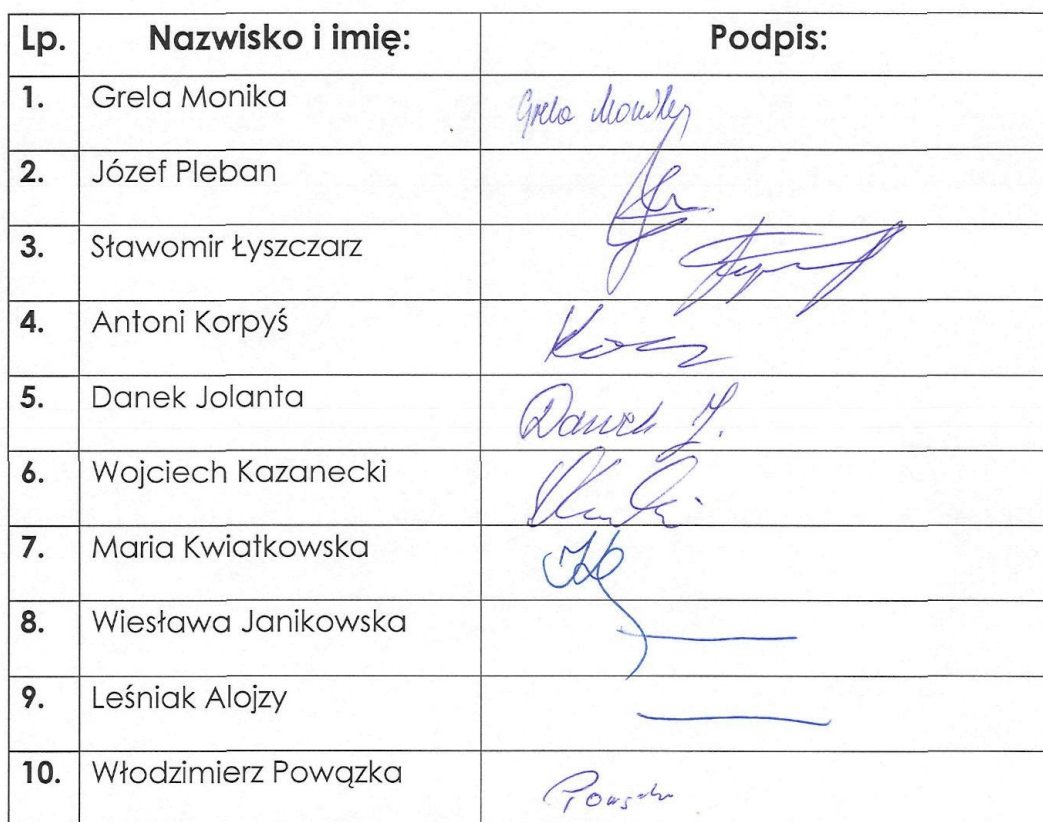 Lp. Nazwisko i imię: Podpis:
1. Grela Monika Grela Monika
2. Józef Pleban
3. Sławomir Łyszczarz
4. Antoni Korpyś
5. Danek Jolanta Danek J.
6. Wojciech Kazanecki
7. Maria Kwiatkowska
8. Wiesława Janikowska
9. Leśniak Alojzy
10. Włodzimierz Powązka